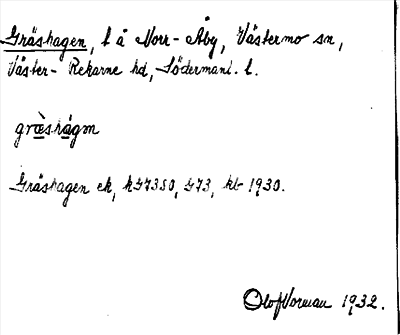 Gräshagen, l å Norr-Åby, Västermo sn,
Väster-Rekarne hd, Södermanl. l.
græ̀shágm
Gräshagen ek, k473S0, 473, kb 1930.
Olof Vorman 1932.